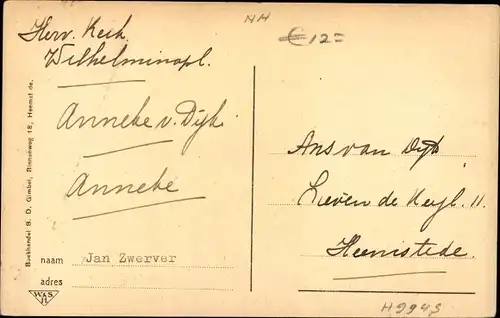 Herv. Kerk
Wilhelminapl.
Anneke v. Dijk
Anneke
naam Jan Zwerver
adres
Boekhandel B. D. Gimbel, Binnenweg 18, Heemst.de.
WAS
NH
€ 12=
Ans van Dijk
Lieven de Keyl. 11
Heemstede
H994S